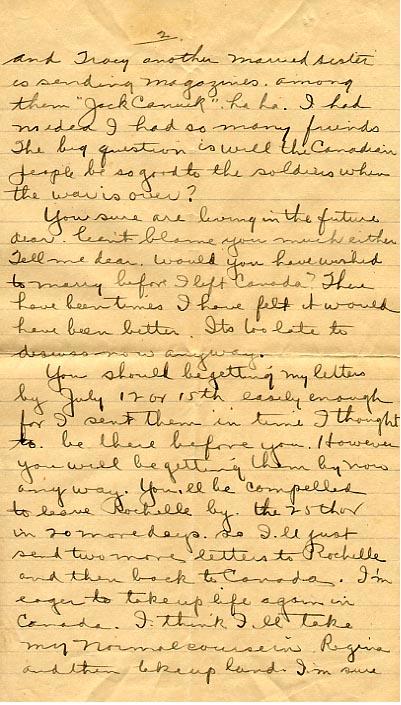 2.
and Tracy another married sister
is sending magazines. among
them "Jack Canuck". ha ha. I had
no idea I had so many friends
The big question is will the Canadian
people be so good to the soldiers when
the war is over?
You sure are living in the future
dear. Can't blame you much either
Tell me dear. Would you have wished
to marry before I left Canada? There
have been times I have felt it would
have been better. Its too late to
discuss now anyway.
You should be getting my letters
by July 12 or 15th easily enough
for I sent them in time I thought
to. be there before you. However
you will be getting them by now
any way. You.ll be compelled
to leave Rochelle by. the 25th or
in 20 more days. so I.ll just
send two more letters to Rochelle
and then back to Canada. I'm
eager to take up life again in
Canada. I think I.ll take
my Normal course in Regina
and then take up land. I'm sure